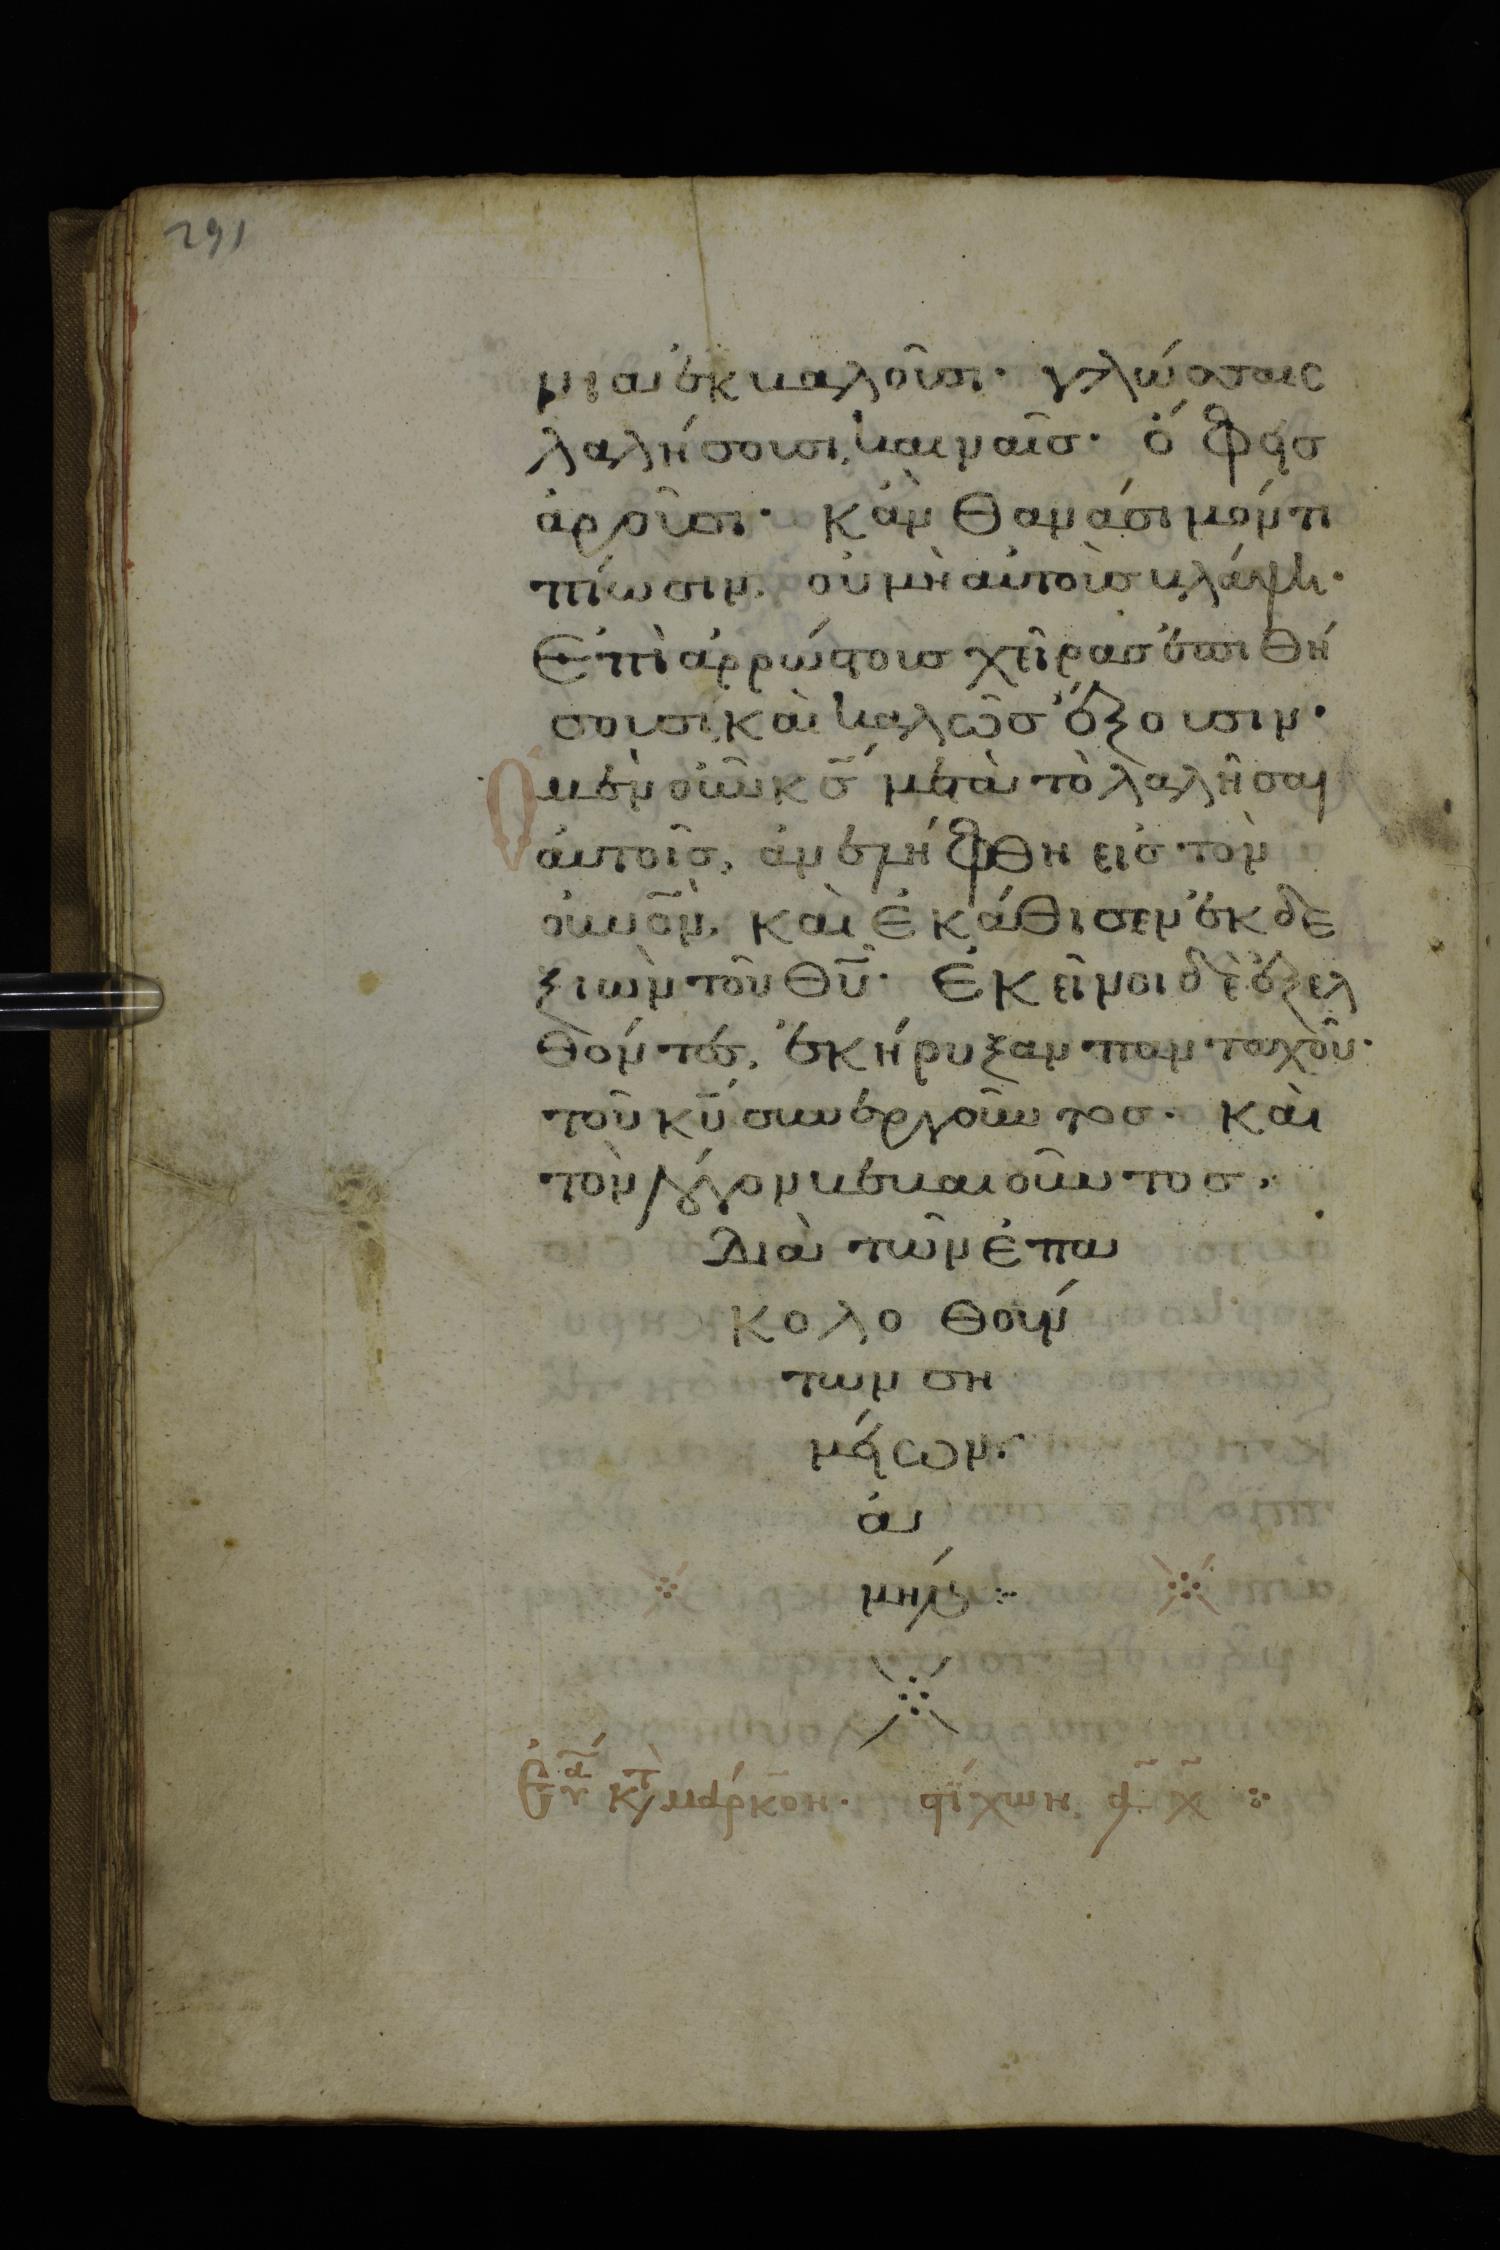 291
μιαἐκβαλοῦσι· γλώσσαις
λαλήσουσι, καιναῖσ· ὄφησ
ἀροῦσι· κἂν θανάσιμόν τι
πίωσιν, οὐ μὴ αὐτοὺσ βλάψη·
Ἐπὶ ἀρρώστουσ χεῖρασ ἐπιθή
σουσι, καὶ καλῶσ ἕξουσιν·
Ὁ μὲν οὖν κ̅σ̅ μετὰ τὸ λαλῆσαι
αὐτοῖσ, ἀνελήφθη εἰσ τὸν
οὐν̅ο̅ν, καὶ ἐκάθισεν ἐκ δε
ξιῶν τοῦ θ̅υ̅· Ἐκεῖνοι δὲ ἐξελ
θόντεσ, ἐκήρυξαν πανταχοῦ·
τοῦ κ̅υ̅ συνεργοῦντοσ· καὶ
τὸν λόγον βεβαιοῦντοσ,
Διὰ τῶν ἐπα
κολοθούν
των ση
μείων·
ἀ
μήν ⁘
Εὐα̅γ κτ̀ μάρκ̅ον· στίχων, α̅ χ̅ ⁘